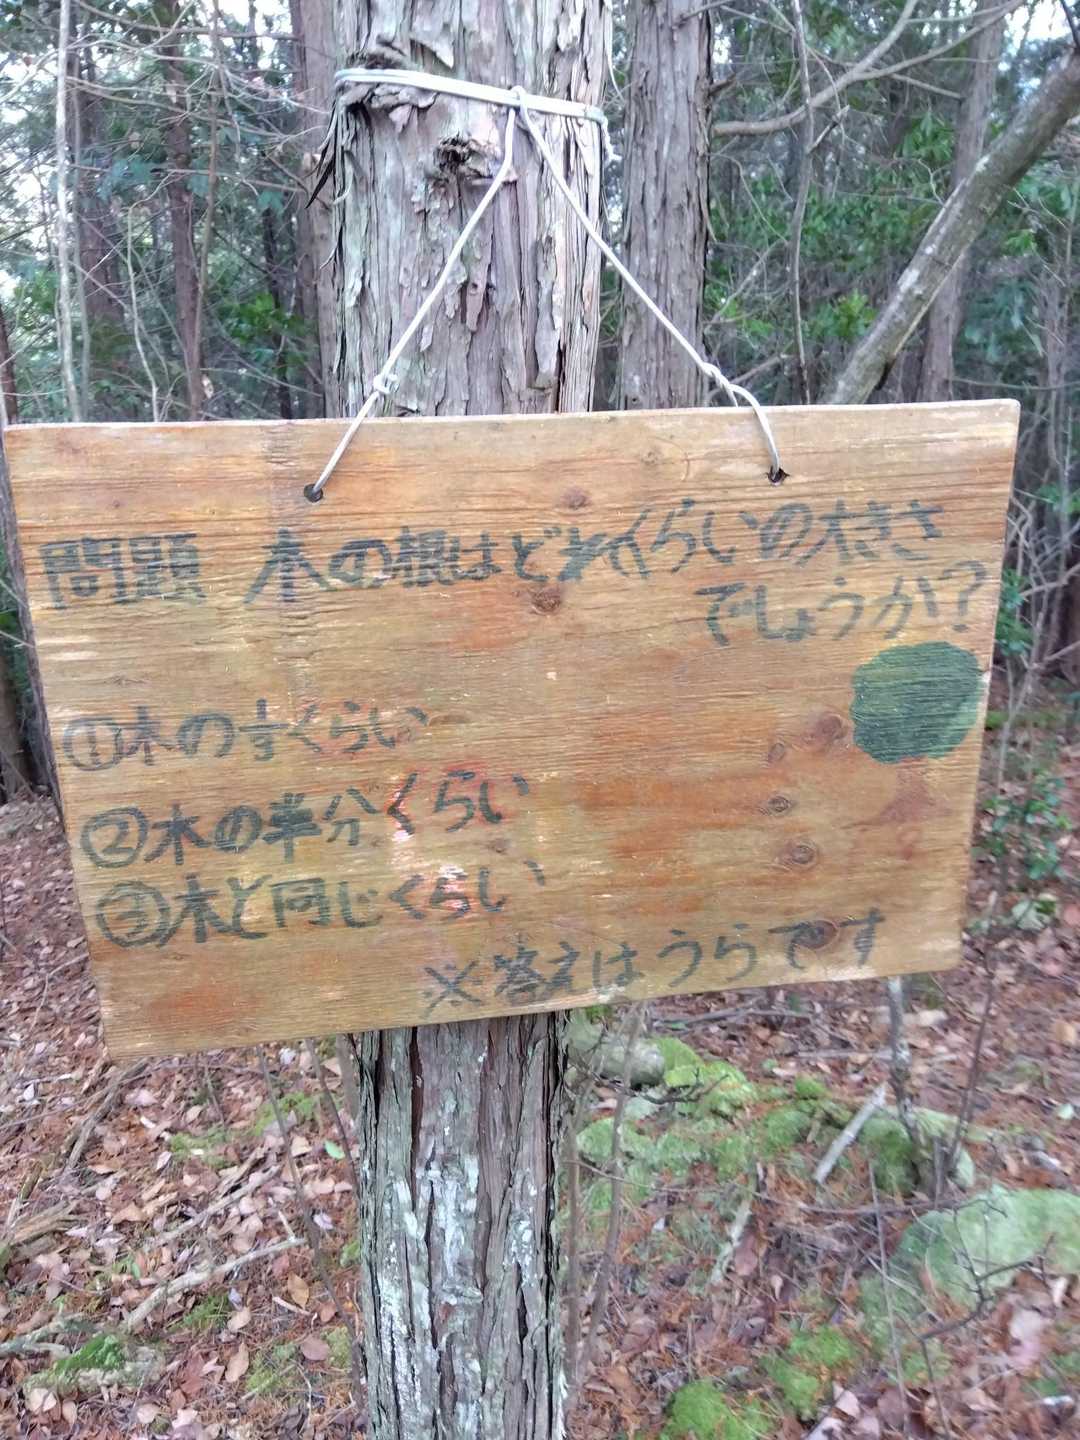 問題 木の根はどれくらいの大きさ
でしょうか?
①木の1/3くらい
②木の半分くらい
③木と同じくらい
※答えはうらです